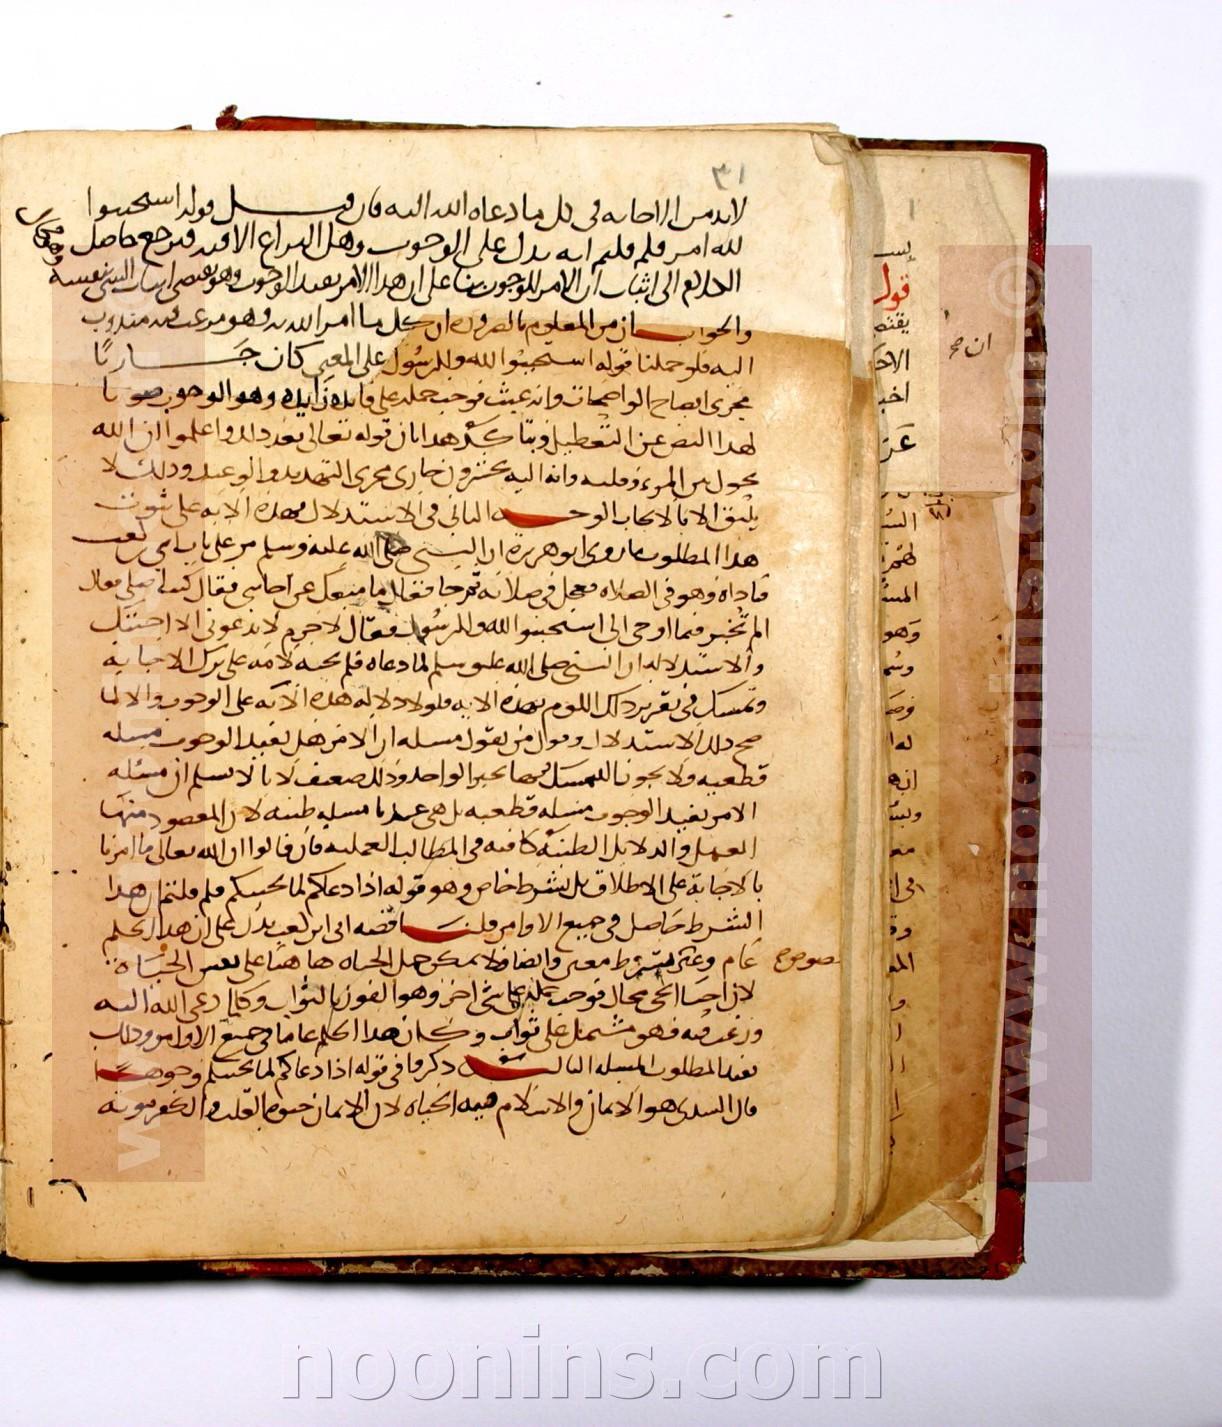 ٣١
لابد من الاجابه فى كل ما دعاه الله اليه فان قيل قوله استجيبوا
لله امر فلم قلتم انه يدل على الوجوب وهل النزاع الا فيه فيرجع حاصل
الكلام الى اثبات ان الامر للوجوب بنا على ان هذا الامر يفيد الوجوب وهو يقتضى اثبات الشى بنفسه
والجواب ان من المعلوم بالضروره ان كل ما امر الله به فهو مرغب فيه مندوب
اليه فلو حملنا قوله استجيبوا لله وللرسول على المعنى كان جاريا
مجرى ايضاح الواضحات وانه عبث فوجب حمله على فايده زايده وهو الوجوب صونا
لهذا النص عن التعطيل ويتاكد هذا بان قوله تعالى بعد ذلك واعلموا ان الله
يحول بين المرء وقلبه وانه اليه تحشرون جارى مجرى التهديد والوعيد وذلك لا
يليق الا بالايجاب الوجه الثانى فى الاستدلال بهذه الايه على ثبوت
هذا المطلوب ما روى ابو هريرة ان النبى صلى الله عليه وسلم مر على باب ابى بن كعب
فناداه وهو فى الصلاه فعجل فى صلاته ثم جا فقال ما منعك عن اجابتى فقال كنت اصلى فقال
الم تخبر فيما اوحى الى استجيبوا لله وللرسول فقال لا جرم لا تدعونى الا اجبتك
والاستدلال به ان النبى صلى الله عليه وسلم لما دعاه فلم يجبه لامه على ترك الاجابه
وتمسك فى تقرير ذلك اللوم بهذه الايه فلولا دلاله هذه الايه على الوجوب والا لما
صح ذلك الاستدلال وقول من يقول مسله ان الامر هل يفيد الوجوب مسله
قطعيه ولا يجوز التمسك فيها بخبر الواحد وذلك ضعيف لانا لا نسلم ان مسئله
الامر يفيد الوجوب مسئله قطعيه بل هى عندنا مسله ظنيه لان المقصود منها
العمل والدلايل الظنيه كافيه فى المطالب العمليه فان قالوا ان الله تعالى ما امرنا
بالاجابة على الاطلاق بل بشرط خاص وهو قوله اذا دعاكم لما يحييكم فلم قلتم ان هذا
الشرط حاصل فى جميع الاوامر قلنا قصه ابى بن كعب تدل على ان هذا الحكم
عام وغير بشرط معين وايضا فلا يمكن حمل الحياه هاهنا على نفس الحياه
لان احيا الحى محال فوجب حمله على شى اخر وهو الفوز بالثواب وكلما دعى الله اليه
ورغب فيه فهو مشتمل على ثواب وكان هذا الحكم عاما فى جميع الاوامر وذلك
يفيد المطلوب المسله الثالثه ذكروا فى قوله اذا دعاكم لما يحييكم وجوها
قال السدى هو الايمان والاسلام فيه الحياه لان الايمان حيوة القلب والكفر موته
قول
ان صح
www.noonins.com
noonins.com